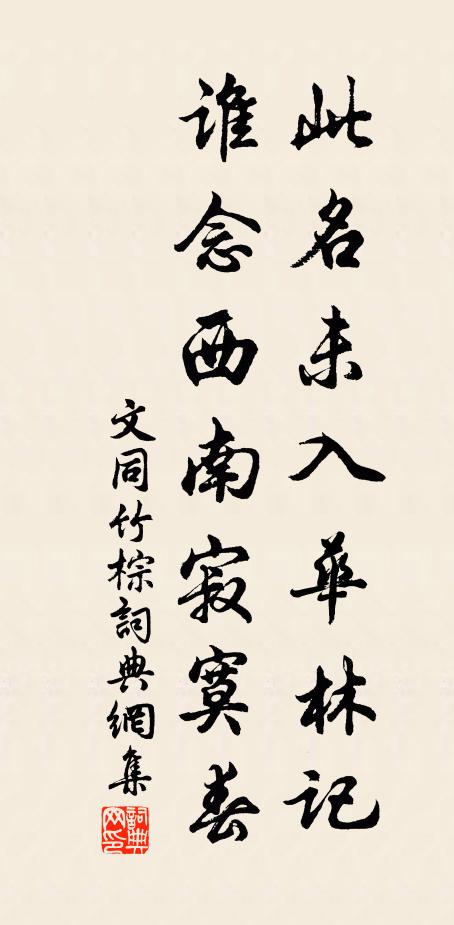 此名未入華林記
誰念西南寂寞春
文同竹棕詞典網集
詞典網印